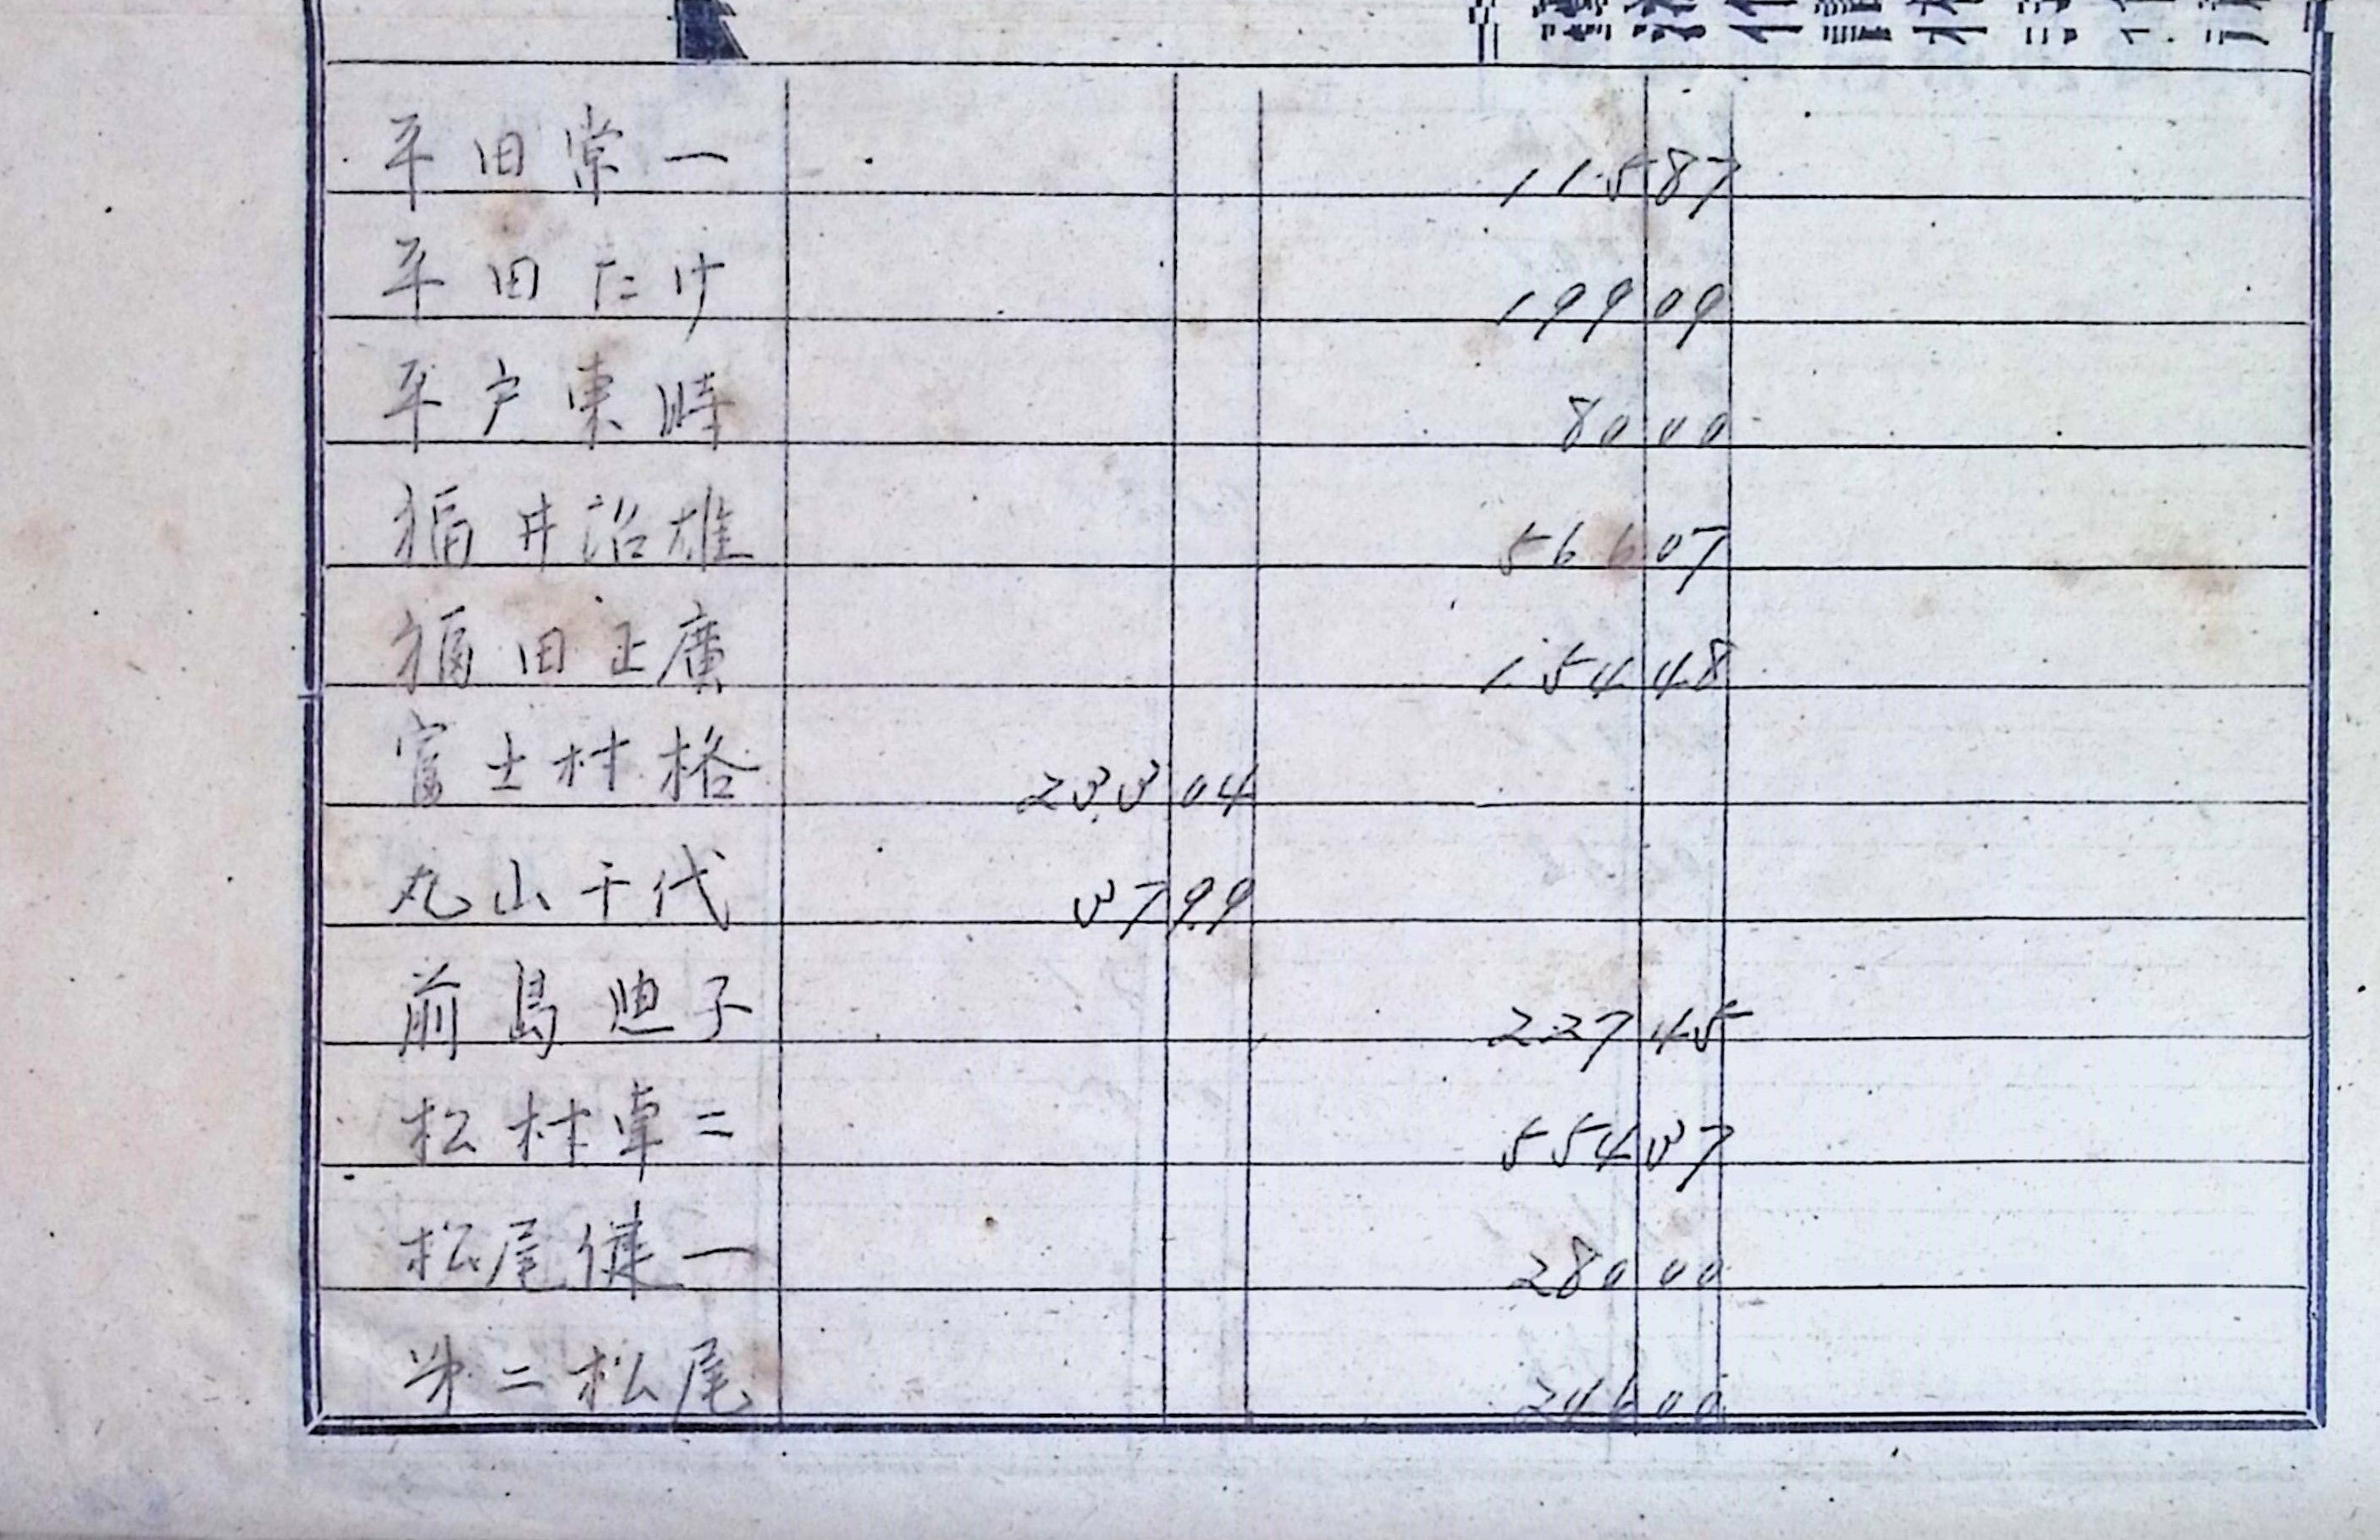 平田常一 115 87
平田たけ 199 09
平戸東時 80 00
福井治雄 566 07
福田正廣 154 48
富士村格 233 04
丸山千代 37 99
前島 子 227 45
松村卓二 554 37
松尾健一 280 00
第二松尾 246 00